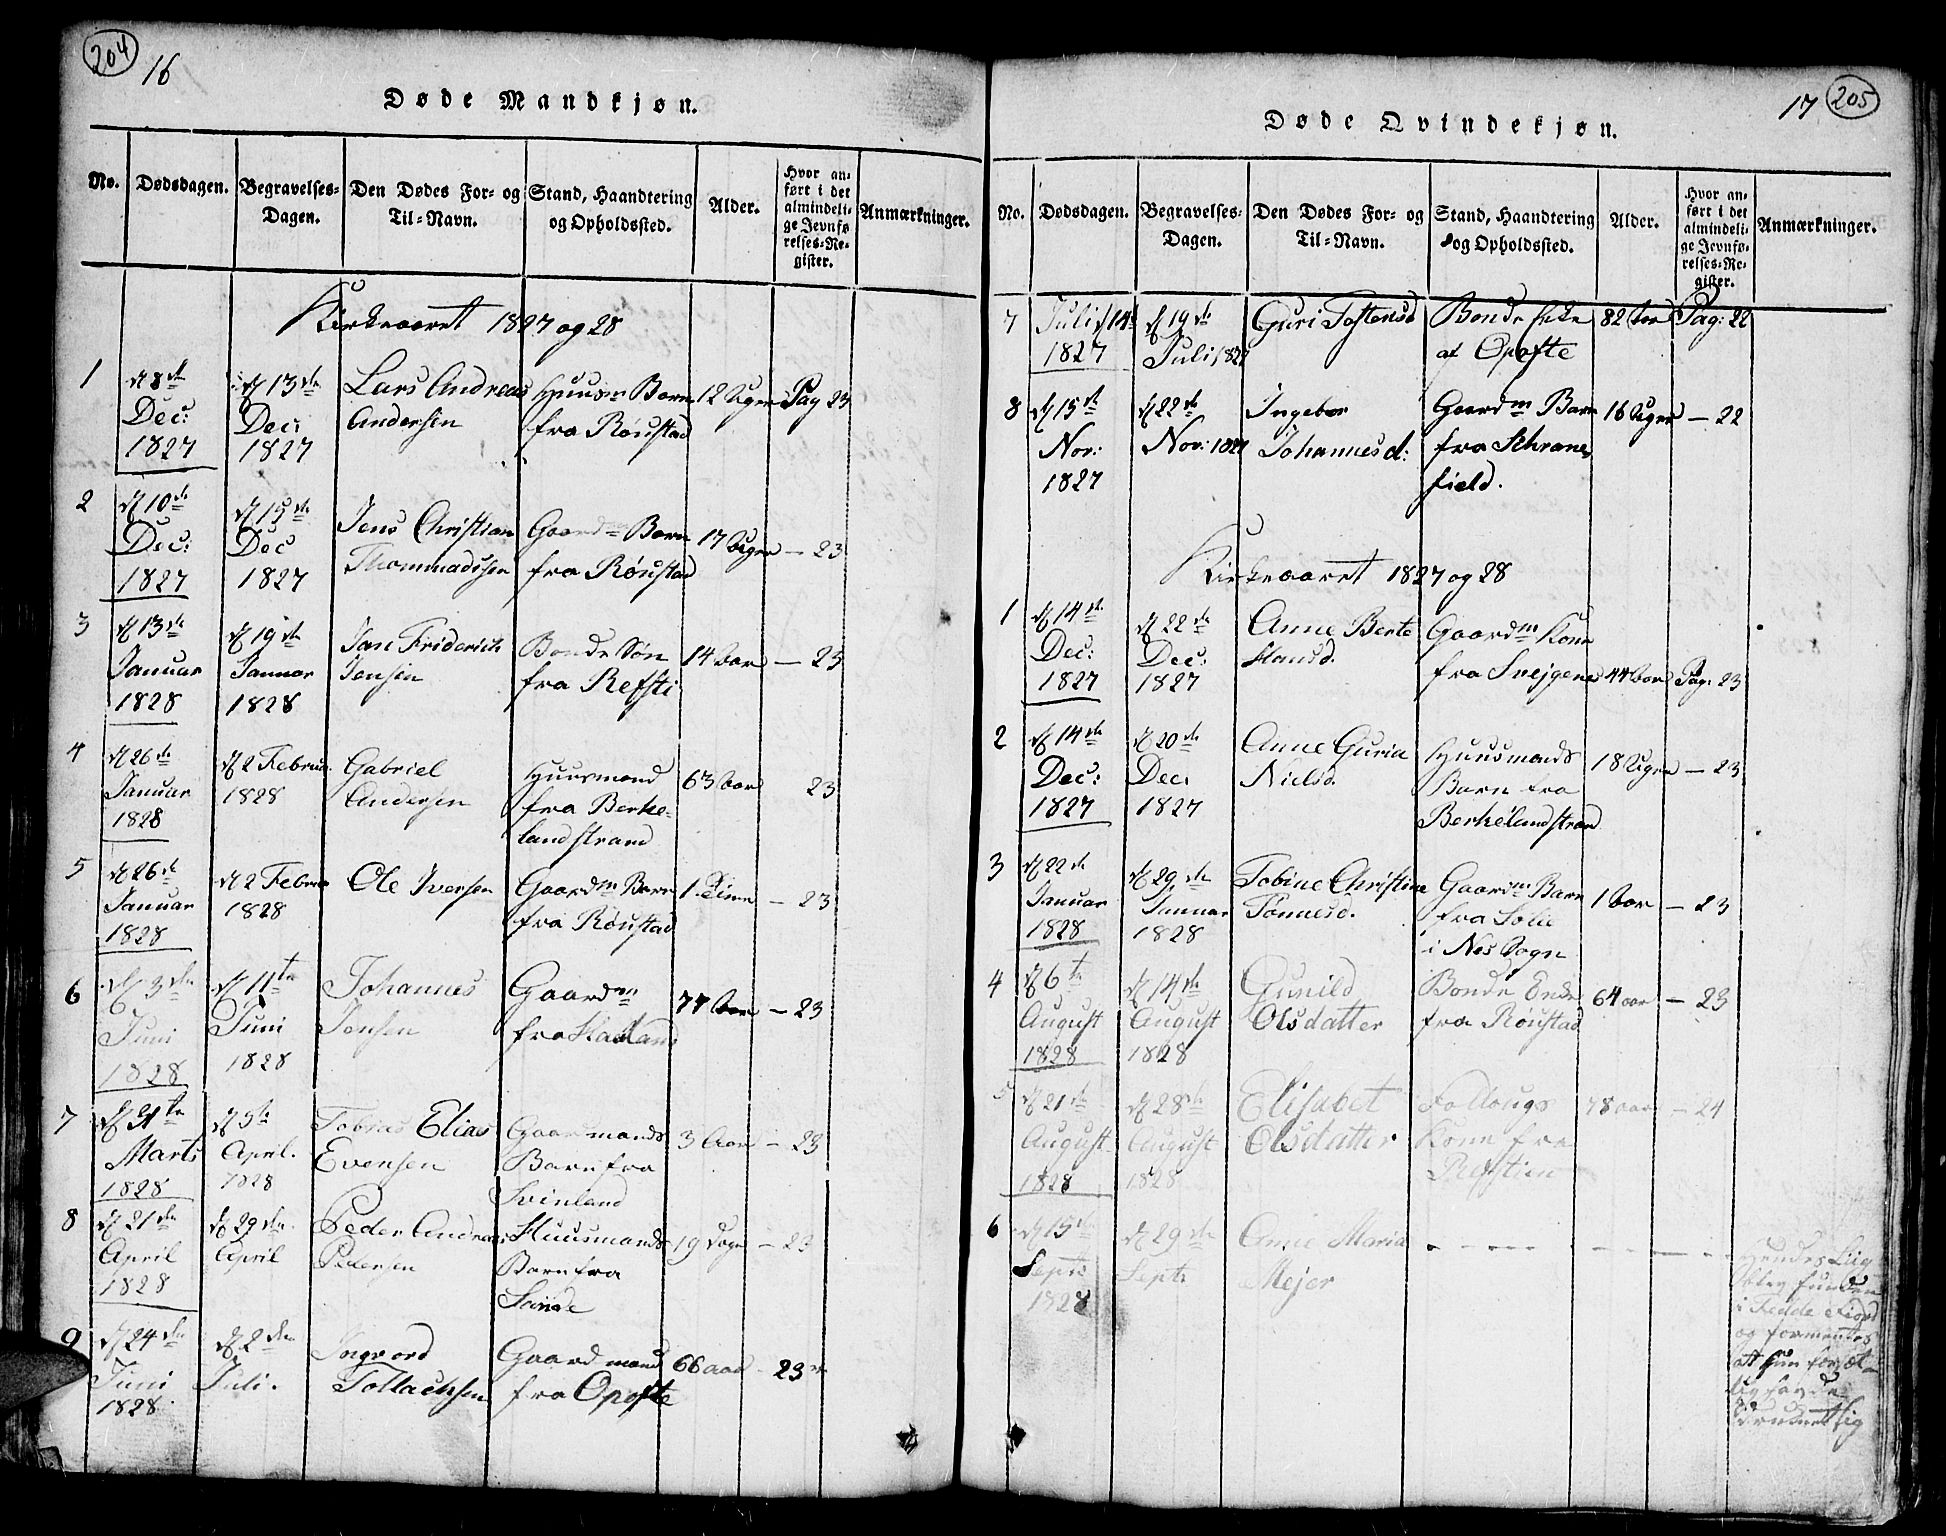 204
16
Døde Mandkjøn.
No. Dødsdagen. Begravelses-Dagen. Den Dødes For- og Til-Navn. Stand, Haandtering og Opholdssted. Alder. Hvor anført i det almindelige Jevnførelses-Register. Anmærkninger.
Kirkeaaret 1827 og 28
1 d 8de Dec: 1827 d 13de Dec: 1827 Lars Andreas Andersen Huusm Barn fra Røustad 12 Uger Pag 23
2 d 10de Dec: 1827 d 15de Dec 1827 Jens Christian Thommadssen Gaardm Barn fra Røustad 17 Uger – 23
3 d 13de Januar 1828 d 19de Januar 1828 Jan Friderich Jensen Bonde Søn fra Refsti 14 Aar – 23
4 d 26de Januar 1828 d 2 Februa. 1828 Gabriel Andersen Huusmand fra Berke-landstrand 63 Aar 23
5 d 26de Januar 1828 d 2 Februa 1828 Ole Iversen Gaardm Barn fra Røustad 1 Time – 23
6 d 3de Juni 1828 d 11te Juni 1828 Johannes Jensen Gaardm fra 77 Aar – 23
7 Marts 1828 d 5te April. 1828 Tobias Elias Evensen Gaardmands Barn fra Svinland 3 Aar – 23
8 d 21de April 1828 d 29de April Peder Andreas Pedersen Huusmands Barn fra Sande 19 Dage – 23
9 d 24de Juni 1828 d 2den Juli. Ingvord Tollachsen Gaardmand fra Opofte 66 aar – 23
17
205
Døde Qvindekjøn.
No. Dødsdagen. Begravelses-Dagen. Den Dødes For- og Til-Navn. Stand, Haandtering og Opholdssted. Alder. Hvor anført i det almindelige Jevnførelses-Register. Anmærkninger.
7 Juli d 14 1827 d 19de Juli 1827 Guri Tostensd Bonde Enke af Opofte 82 Aar Pag: 22
8 d 15de Nov: 1827 d 22de Nov: 1827 Ingebor Johannesd: Gaardm Barn fra Schrane field. 16 Uger – 22
Kirkeaaret 1827 og 28
1 d 14de Dec: 1827 d 22de Dec: 1827 Anne Berte Hansd. Gaardm Kone fra Svejgene 44 Aar Pag: 23
2 d 14de Dec: 1827 d 20de Dec. 1827 Anne Guria Nielsd. Huusmands Barn fra Berkelandstrand 18 Uger – 23
3 d 22de Januar 1828 d 29de Januar 1828 Tobine Christine Tønnesd. Gaardm Barn fra Solie i Nes Sogn 1 Aar – 23
4 d 6te August 1828 d 14de August 1828 Gunild Olsdatter Bonde Enke fra Røustad 64 aar – 23
5 d 21de August 1828 d 28de August 1828 Elisabet Olsdatter Follougs Kone fra Refstien 78 aar – 24
6 d 15de Septr 1828 d 29de Septr Anne Maria Mejer – – – – – – – – Hendes Liig blev funden i Fedde Fiord og formentes att hun forsætlig havde druknet sig